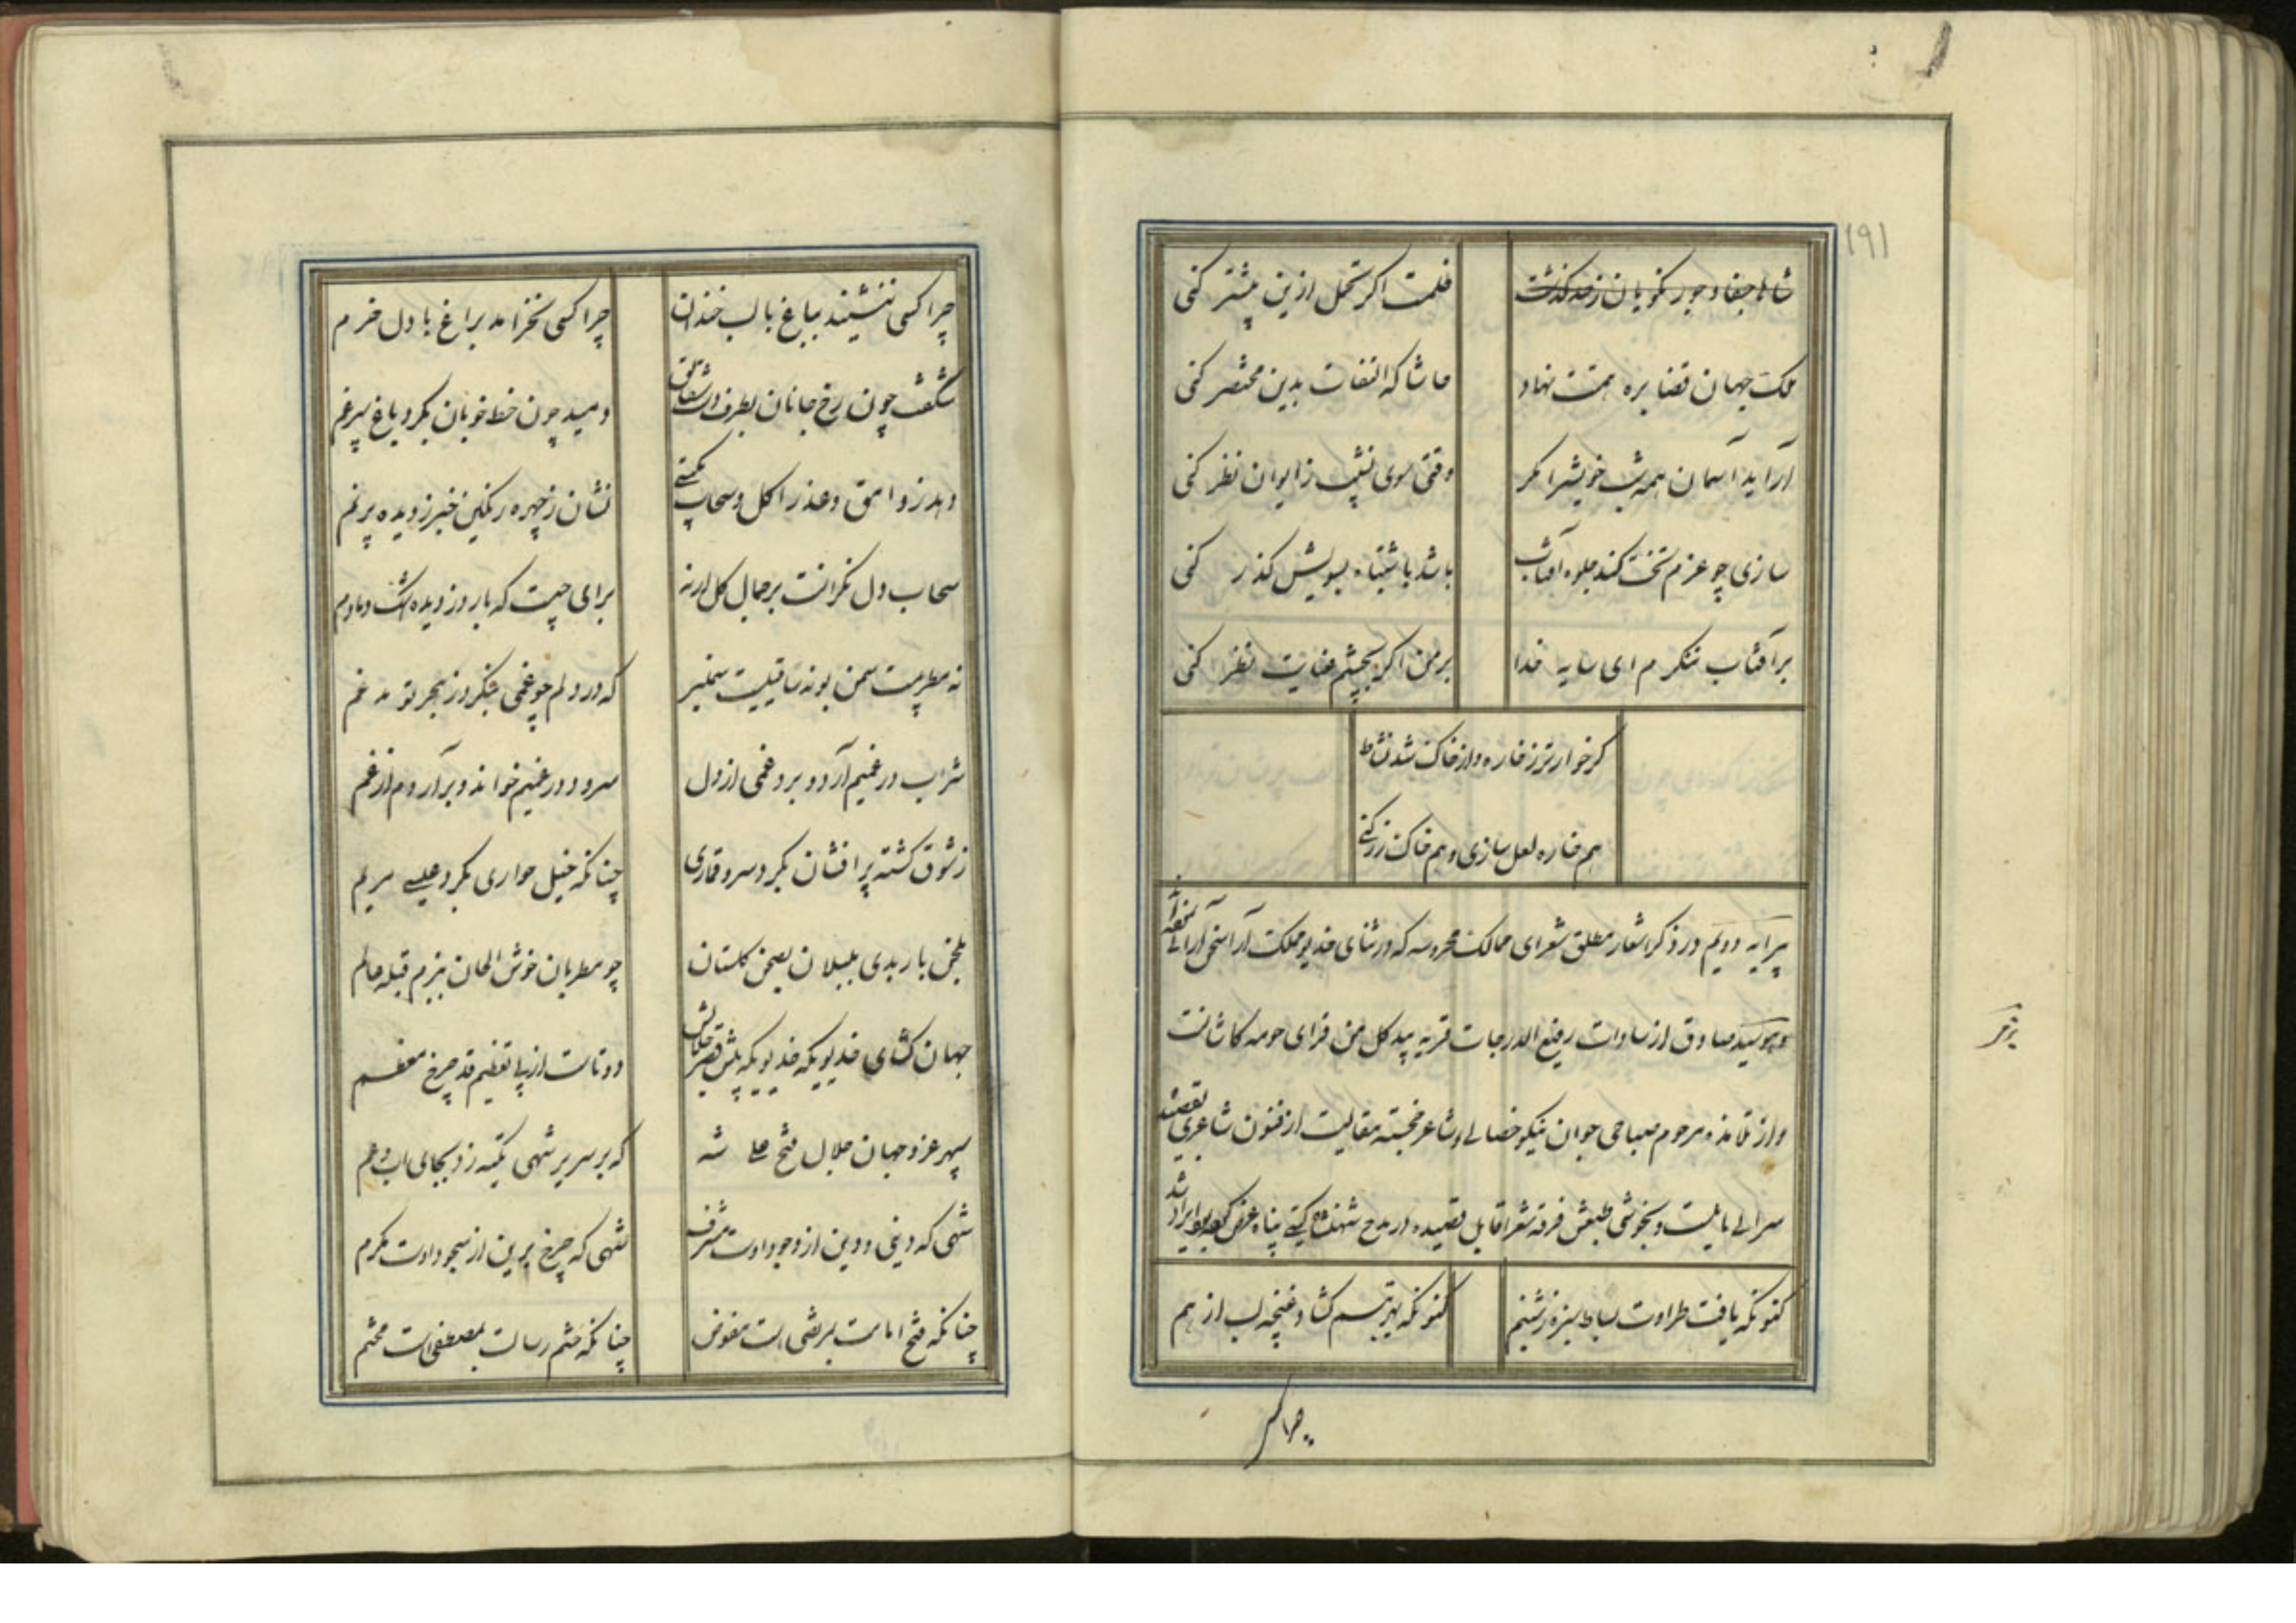 ۱۹۱
شاها جفا و جور نکویان ز حد گذشت
ظلمست اگر تحمل ازین بیشتر کنی
ملک جهان قضا بره همتت نهاد
حاشا که التفات بدین مختصر کنی
آراید آسمان همه شب خویش را مگر
وقتی سوی نشیب ز ایوان نظر کنی
سازی چو عزم تخت کند جلوه آفتاب
باشد باشتباه بسویش گذر کنی
بر آفتاب ننگرم ای سایه خدا
بر من اگر بچشم عنایت نظر کنی
گر خوارتر ز خاره و از خاک شد نشاط
هم خاره لعل سازی و هم خاک زر کنی
پیرایه دویم در ذکر اشعار مطلق شعرای ممالک محروسه که در ثنای خدیو مملکت آرا سخن آرائی
وهو سید صادق از سادات رفیع الدرجات قریه بیدگل من قرای حومه کاشانست
و از تلامذه مرحوم صباحی جوان نیکو خصالی و شاعر خجسته مقالیست از فنون شاعری بقصیده
سرائی مایلست و بخوشی طبعش فرقه شعرا قایل قصیده در مدح شهنشاه گیتی پناه عرض
کنونکه یافت طراوت بساط سبزه ز شبنم
کنونکه بهر تبسم گشاد غنچه لب از هم
چرا کسی
چرا کسی ننشیند بباغ با لب خندان
چرا کسی نخرامد براغ با دل خرم
شکفت چون رخ جانان بطرف دشت شقایق
دمید چون خط خوبان بگرد باغ سپرغم
دهد ز وامق و عذرا گل و سحاب بگیتی
نشان ز چهره رنگین خبر ز دیده پر نم
سحاب دل نگرانست بر جمال گل ار نه
برای چیست که بارد ز دیده اشک دمادم
نه مطربیست سمن بو نه ساقییست سمنبر
که در دلم چو غمی بنگرد ز هجر تو مدغم
شراب در غمیم آرد و برد غمی از دل
سرود در غمیم خواند و برآردم از غم
ز شوق گشته پر افشان بگرد سرو قماری
چنانکه خیل حواری بگرد عیسی مریم
بلحن باربدی بلبلان بصحن گلستان
چو مطربان خوش الحان ببزم قبله عالم
جهان گشای خدیویکه خدیویکه پیش قصر جلالش
دوتاست از پی تعظیم قد چرخ معظم
سپهر عز و جهان جلال فتح علی شه
که بر سریر شهی تکیه زد بجای اب و عم
شهی که دنیی و دین از وجود اوست مشرف
شهی که چرخ برین از سجود اوست مکرم
چنانکه فتح امامت بمرتضی است مفوض
چنانکه ختم رسالت بمصطفی است مختم